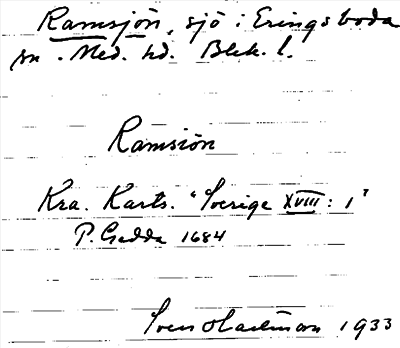 Ramsjön, sjö i Eringsboda
sn. Med. hd. Blek. l.
Ramsiön
Kra. Karts. "Sverige XVIII: 1"
P. Gedda 1684
Sven 1933